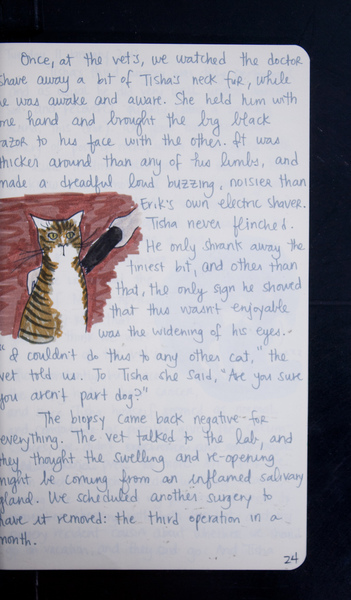 Once, at the vet's, we watched the doctor
shave away a bit of Tisha's neck fur, while
he was awake and aware. She held him with
one hand and brought the big black
razor to his face with the other. It was
thicker around than any of his limbs, and
made a dreadful loud buzzing, noisier than
Erik's own electric shaver.
Tisha never flinched.
He only shrank away the
tiniest bit, and other than
that, the only sign he showed
that this wasn't enjoyable
was the widening of his eyes.
"I couldn't do this to any other cat," the
vet told us. To Tisha she said, "Are you sure
you aren't part dog?"
The biopsy came back negative - for
everything. The vet talked to the lab, and
they thought the swelling and re-opening
might be coming from an inflamed salivary
gland. We scheduled another surgery to
have it removed: the third operation in a
month.
24